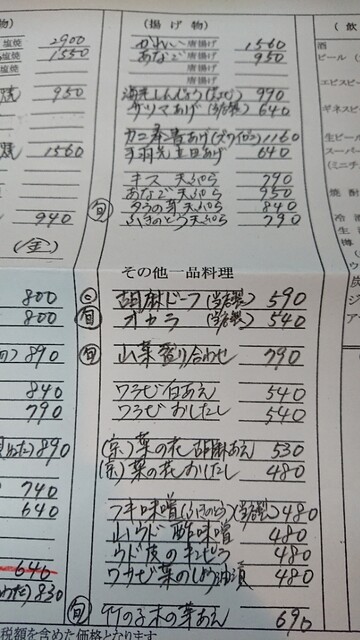 (揚げ物)
かれい 唐揚げ 1560
あなご 唐揚げ 950
唐揚げ
海老しんじょう 990
サツマあげ (当店製) 640
カニ春巻あげ (ズワイガニ) 1160
手羽先立田あげ 640
キス 天ぷら 790
あなご 天ぷら 950
タラの芽 天ぷら 840
旬 ふきのとう 天ぷら 790
その他一品料理
胡麻ドーフ (当店製) 590
旬 オカラ (当店製) 540
旬 山菜盛り合わせ 790
ワラビ白あえ 540
ワラビ おしたし 540
(京)菜の花 胡麻あえ 530
(京)菜の花おしたし 480
フキ味噌 (ふきのとう) (当店製) 480
山ウド 酢味噌 480
ウド皮のキンピラ 480
ワサビ葉のしょう油漬 480
旬 竹の子木の芽あえ 690
税額を含めた価格となります
塩焼 2900
塩焼 1550
塩焼
950
1560
940
(金)
800
800
890
840
790
890
740
640
640
830
酒
ビール
エビスビー
ギネスビ
生ビー
スーパー
(ミニチ
焼酎
冷酒
生
樽